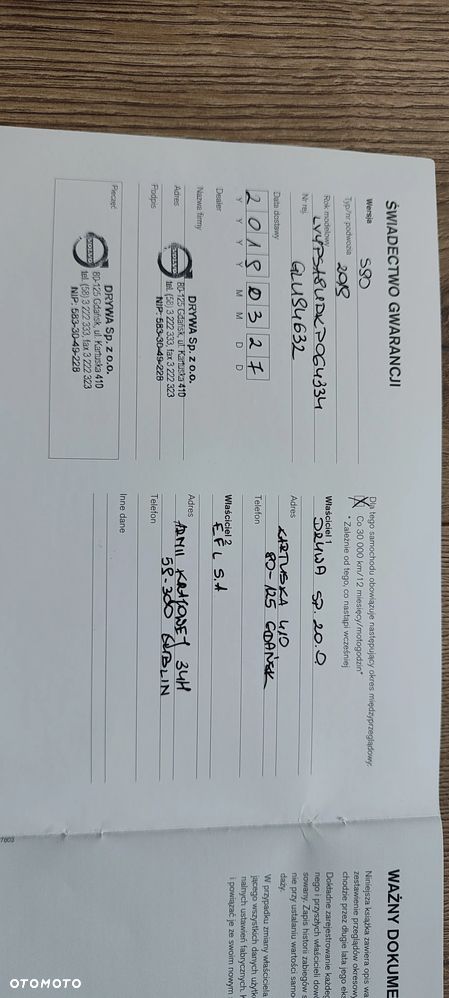 ŚWIADECTWO GWARANCJI
Wersja
S90
Typ/nr podwozia
2018
Rok modelowy
Nr rej.
GLU84632
Data dostawy
2 0 1 8 0 3 2 7
Y Y Y Y M M D D
Dealer
Nazwa firmy
DRYWA Sp. z o.o.
Adres
80-125 Gdańsk, ul. Kartuska 410
tel. (58) 3 222 333, fax 3 222 323
NIP: 583-30-49-228
Podpis
Pieczęć
DRYWA Sp. z o.o.
80-125 Gdańsk, ul. Kartuska 410
tel. (58) 3 222 333, fax 3 222 323
NIP: 583-30-49-228
Dla tego samochodu obowiązuje następujący okres międzyprzeglądowy:
X Co 30 000 km/12 miesięcy/motogodzin*
* Zależnie od tego, co nastąpi wcześniej
Właściciel 1
DRYWA SP. ZO.O
Adres
KARTUSKA 410
80-125 GDAŃSK
Telefon
Właściciel 2
EFL S.A
Adres
ARMII KRAJOWEJ 34H
Telefon
Inne dane
7603
WAŻNY DOKUME
Niniejsza książka zawiera opis wa
zestawienie przeglądów okresowy
chodzie przez długie lata jego ek
Dokładne zarejestrowanie każdeg
nego i przyszłych właścicieli dow
sowany. Zapis historii zabiegów s
nie przy ustalaniu wartości samo
daży.
W przypadku zmiany właściciela
jącego wszystkich danych użytk
nalnych ustawień fabrycznych, k
i powiązać je ze swoim nowym
OTOMOTO